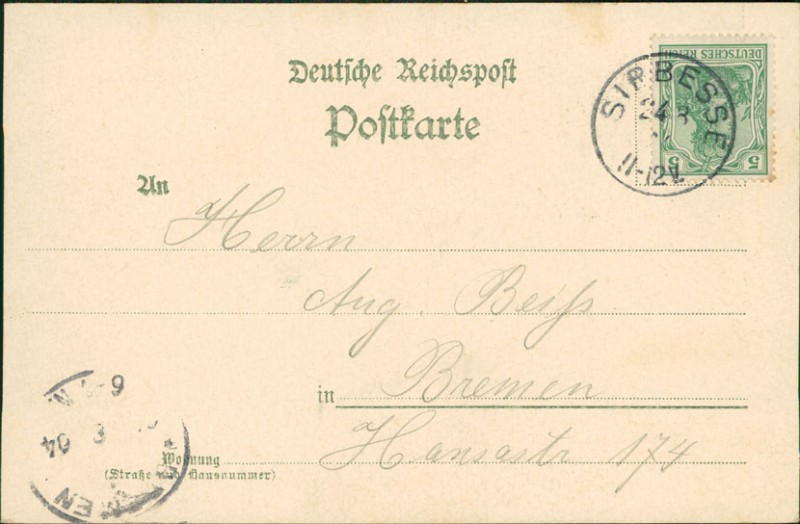 Deutsche Reichspost
Postkarte
DEUTSCHES REICH
5 5
SIBBESSE
24 8
11-12V.
An
Herrn
Aug. Beiß
in Bremen
Hansastr 174
Wohnung
(Straße und Hausnummer)
6-7 N
8 04